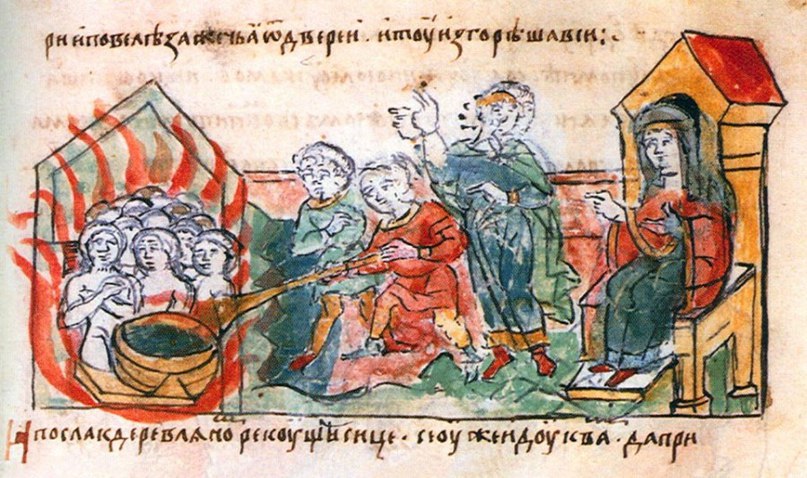 рѝ и повелѣ зажечьѧ ѿ двереи · и тоу изгорѣша вси ⁘
И посла к деревлѧно рекоущѣ сице · се оуже идоу к ва · да при